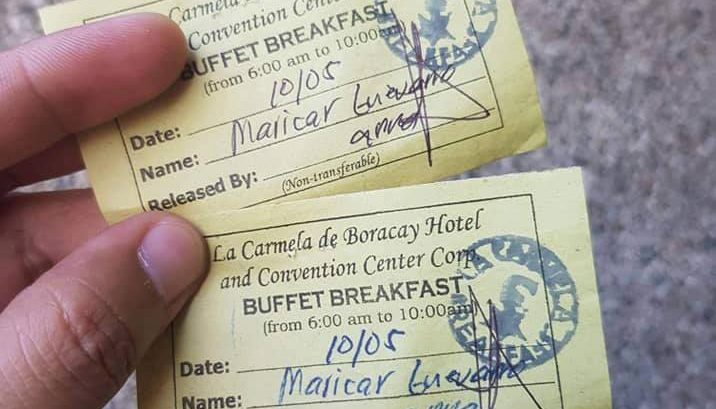 Carmela
Convention Center
BUFFET BREAKFAST
(from 6:00 am to 10:00am
Date: 10/05
Name: Maricar Guevarra
Released By:
(Non-transferable)
La Carmela de Boracay Hotel
and Convention Center Corp.
BUFFET BREAKFAST
(from 6:00 am to 10:00am
Date: 10/05
Name: Maricar Guevarra